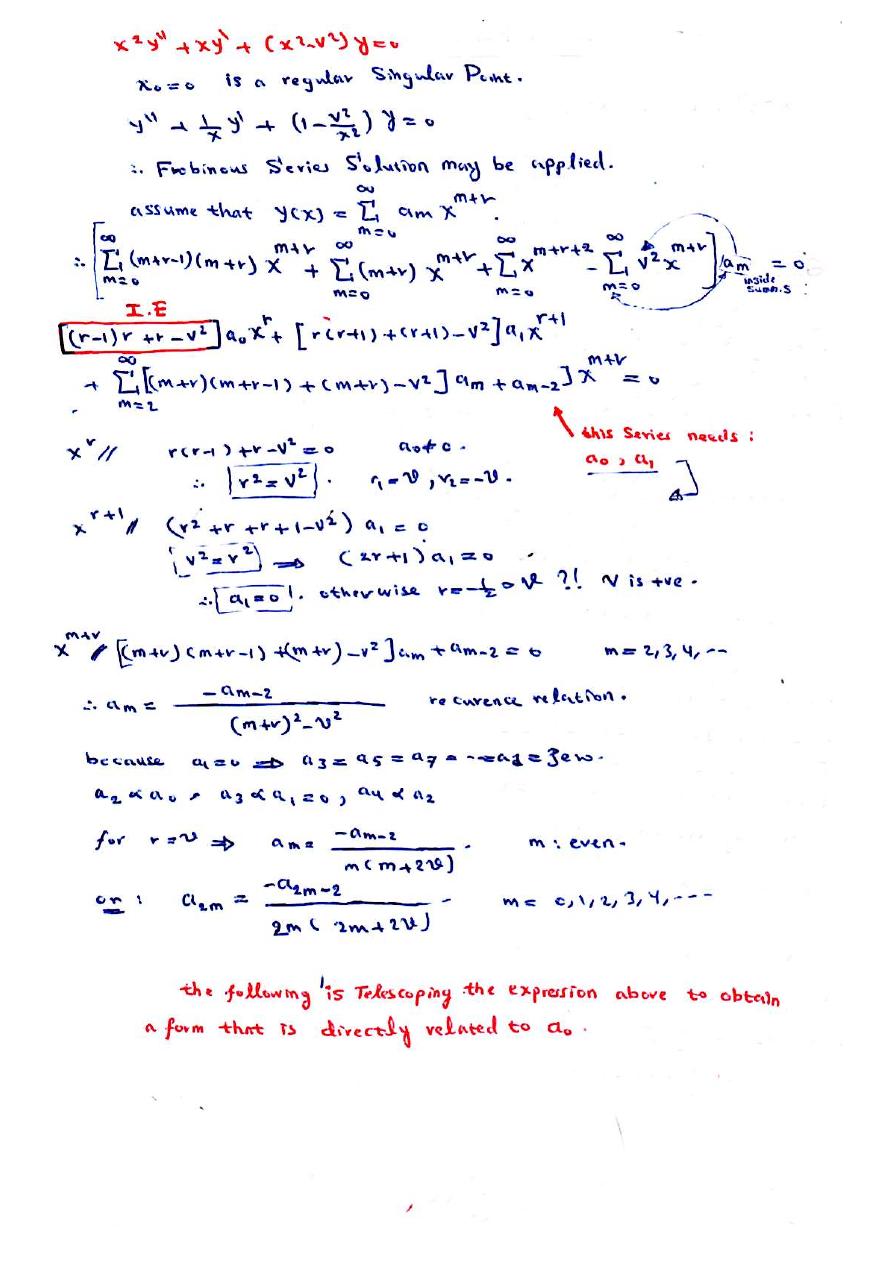 x²y'' + xy' + (x²-ν²) y = 0
x₀ = 0 is a regular Singular Point.
y'' + 1/x y' + (1 - ν²/x²) y = 0
∴ Frobinous Series Solution may be applied.
assume that y(x) = Σ_{m=0}^{∞} am x^{m+r}.
∴ [Σ_{m=0}^{∞} (m+r-1)(m+r) x^{m+r} + Σ_{m=0}^{∞} (m+r) x^{m+r} + Σ_{m=0}^{∞} x^{m+r+2} - Σ_{m=0}^{∞} ν² x^{m+r}] am = 0
inside summ.s
I.E
[(r-1)r + r - ν²] a₀ x^r + [r(r+1) + (r+1) - ν²] a₁ x^{r+1}
+ Σ_{m=2}^{∞} [[(m+r)(m+r-1) + (m+r) - ν²] am + am-2] x^{m+r} = 0
this Series needs :
a₀ , a₁
x^r // r(r-1) + r - ν² = 0 a₀ ≠ 0.
∴ r² = ν² . r₁ = ν , r₂ = -ν.
x^{r+1} // (r² + r + r + 1 - ν²) a₁ = 0
ν² = r² ⇒ (2r+1) a₁ = 0
∴ a₁ = 0 . otherwise r = -1/2 or ?! ν is +ve.
x^{m+r} // [(m+r)(m+r-1) + (m+r) - ν²] am + am-2 = 0 m = 2, 3, 4, ...
∴ am = -am-2 / ((m+r)² - ν²) recurence relation.
because a₁ = 0 ⇒ a₃ = a₅ = a₇ = ... = zero.
a₂ ∝ a₀ , a₃ ∝ a₁ = 0 , a₄ ∝ a₂
for r = ν ⇒ am = -am-2 / (m(m+2ν)) . m : even.
or : a2m = -a2m-2 / (2m(2m+2ν)) m = 0, 1, 2, 3, 4, ....
the following is Telescoping the expression above to obtain
a form that is directly related to a₀ .